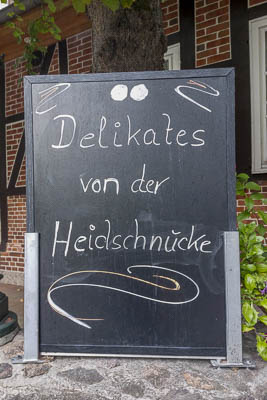 Delikates
von der
Heidschnucke